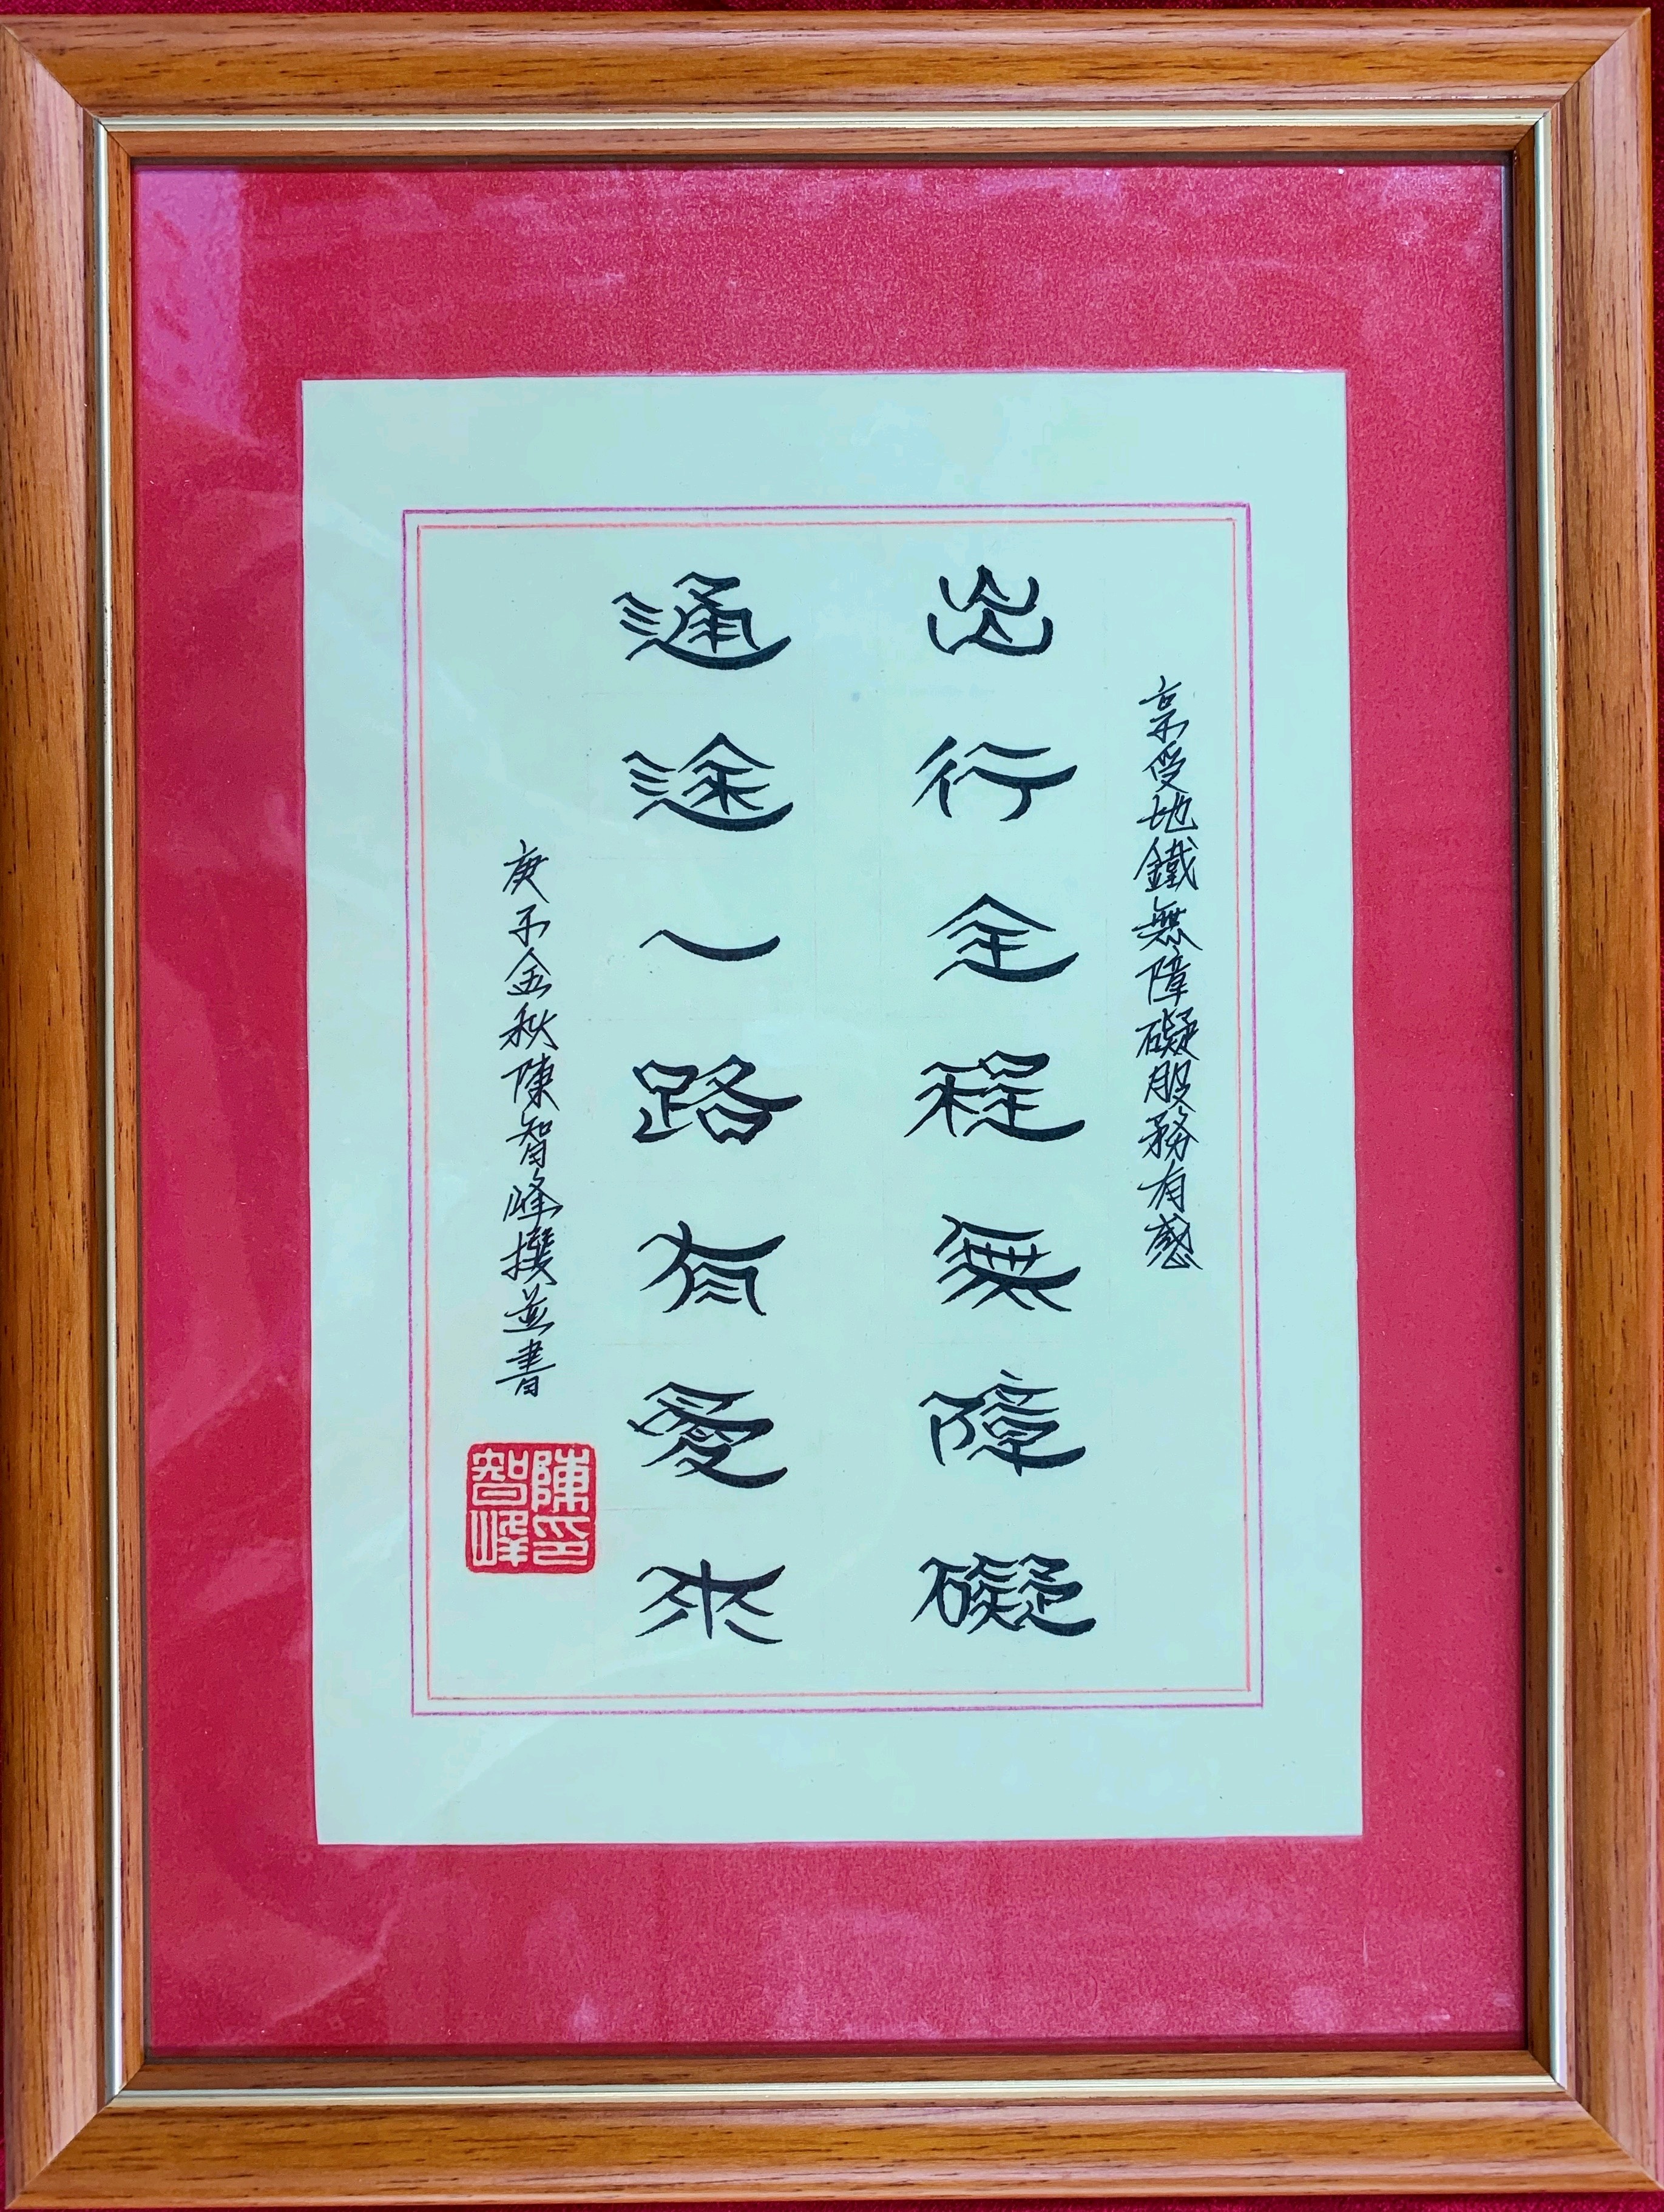 享受地鐵無障礙服務有感
出行全程無障礙
通途一路有愛來
庚子金秋陳智峰撰並書
陳印
智峰